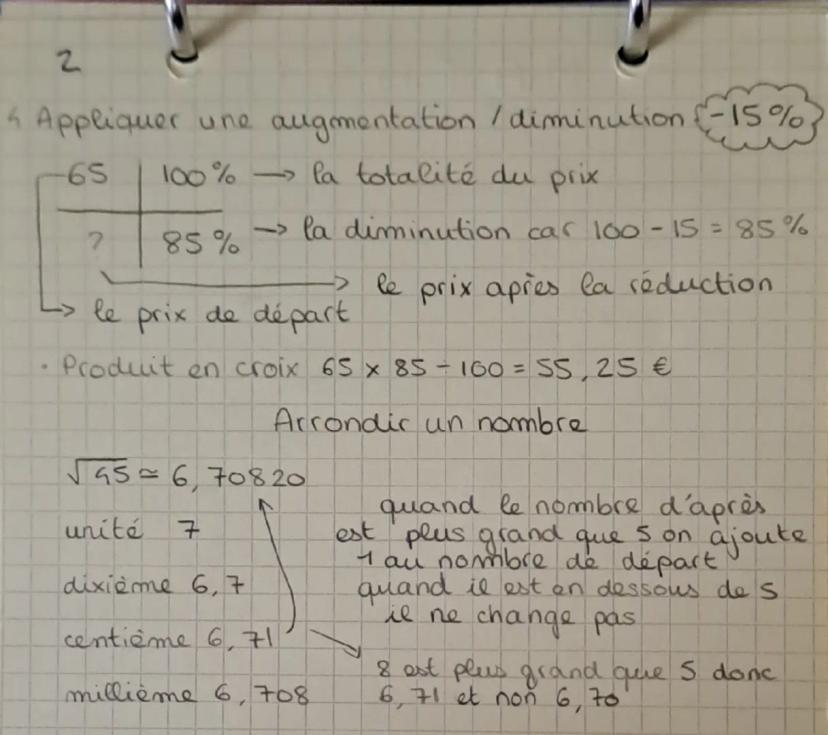 2
Appliquer une augmentation / diminution -15%
65 100% → la totalité du prix
? 85% → la diminution car 100 - 15 = 85%
→ le prix après la réduction
→ le prix de départ
• Produit en croix 65 x 85 ÷ 100 = 55,25 €
Arrondir un nombre
√45 ≃ 6,70820
quand le nombre d'après
unité 7
est plus grand que 5 on ajoute
1 au nombre de départ
dixième 6,7
quand il est en dessous de 5
il ne change pas
centième 6,71
8 est plus grand que 5 donc
millième 6,708
6,71 et non 6,70